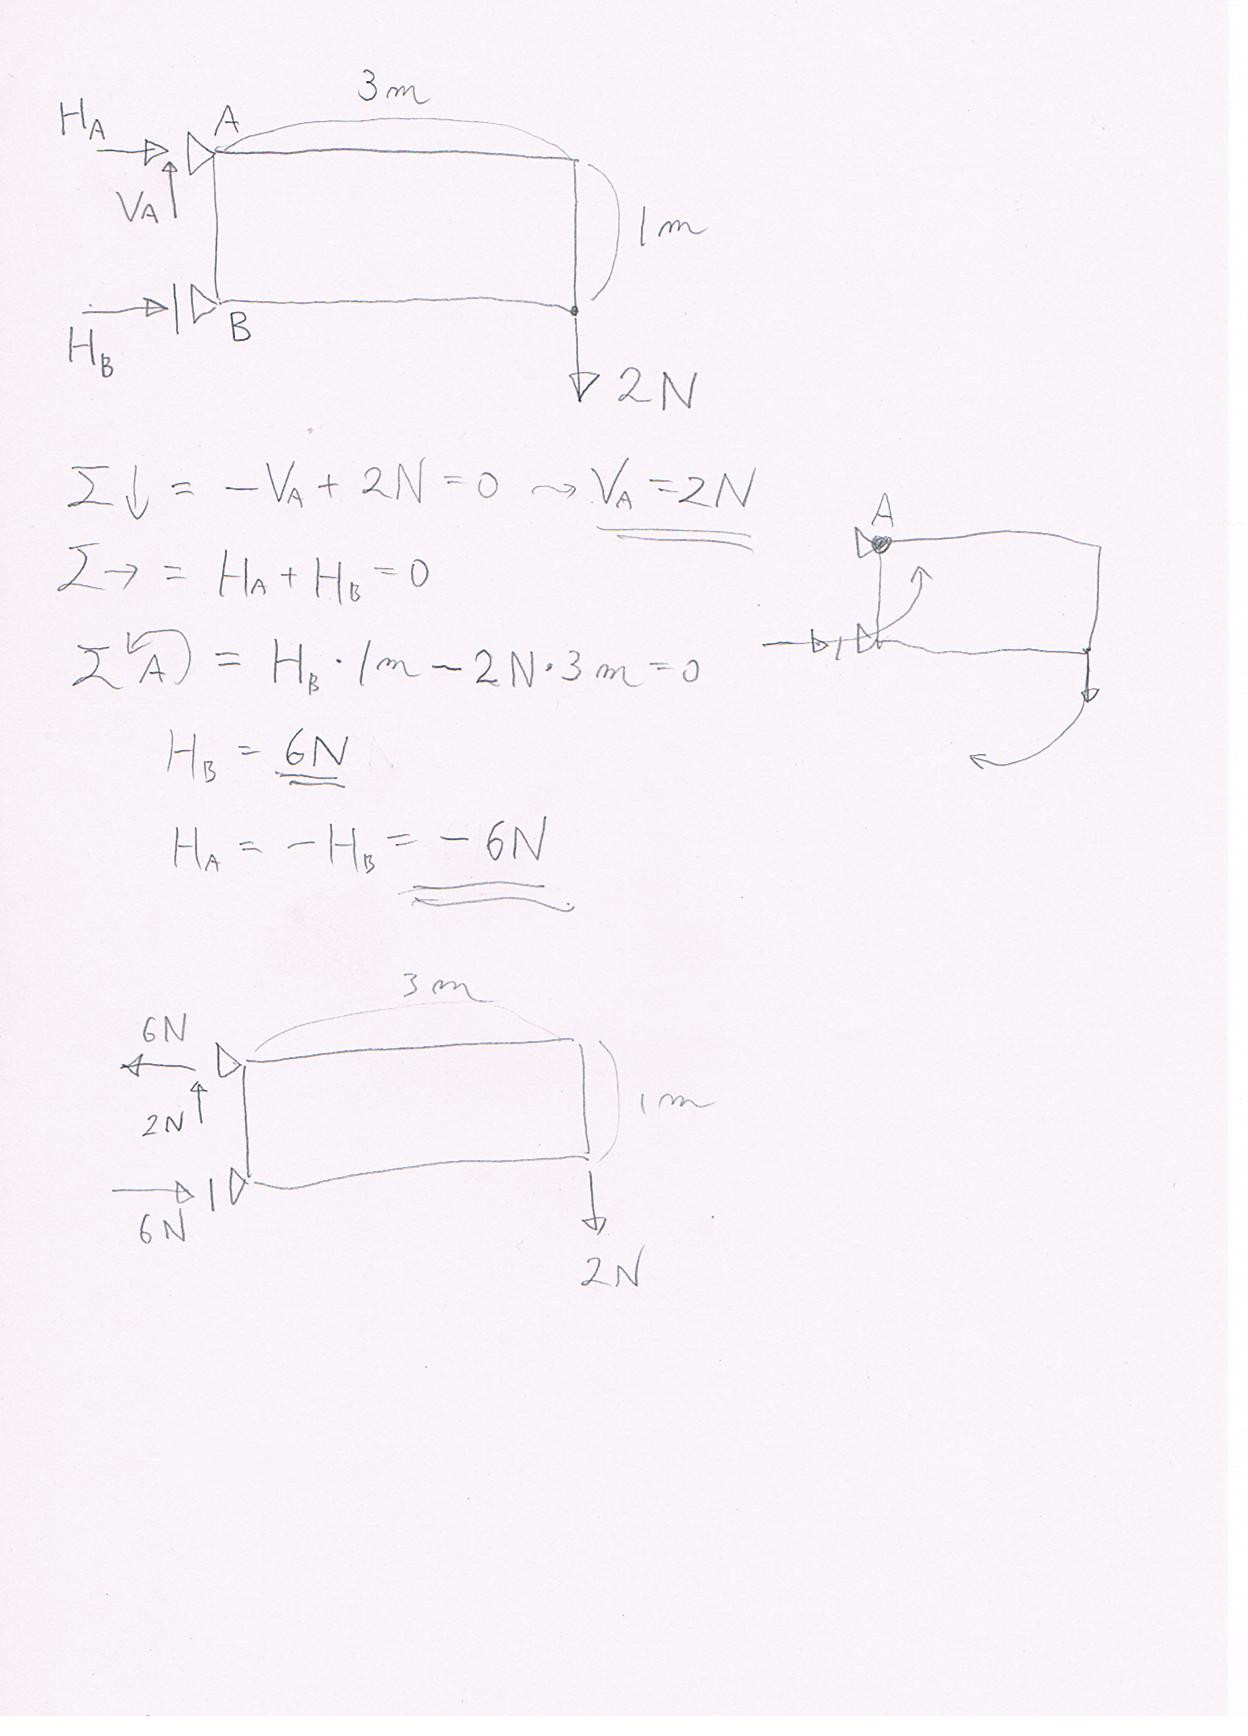 3m
H_A
A
V_A
1m
H_B
B
2N
Σ↓ = -V_A + 2N = 0 ⤳ V_A = 2N
A
Σ→ = H_A + H_B = 0
Σ A↶ = H_B · 1m - 2N · 3m = 0
H_B = 6N
H_A = -H_B = -6N
3m
6N
2N
1m
6N
2N